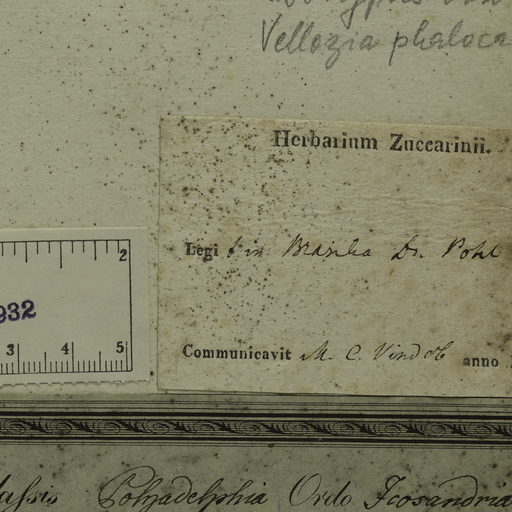 Vellozia phaloca
Herbarium Zuccarinii.
Legi t in Brasilia Dr. Pohl
2
932
3 4 5
Communicavit M. C. Vindob anno
lassis Polyadelphia Ordo Icosandria